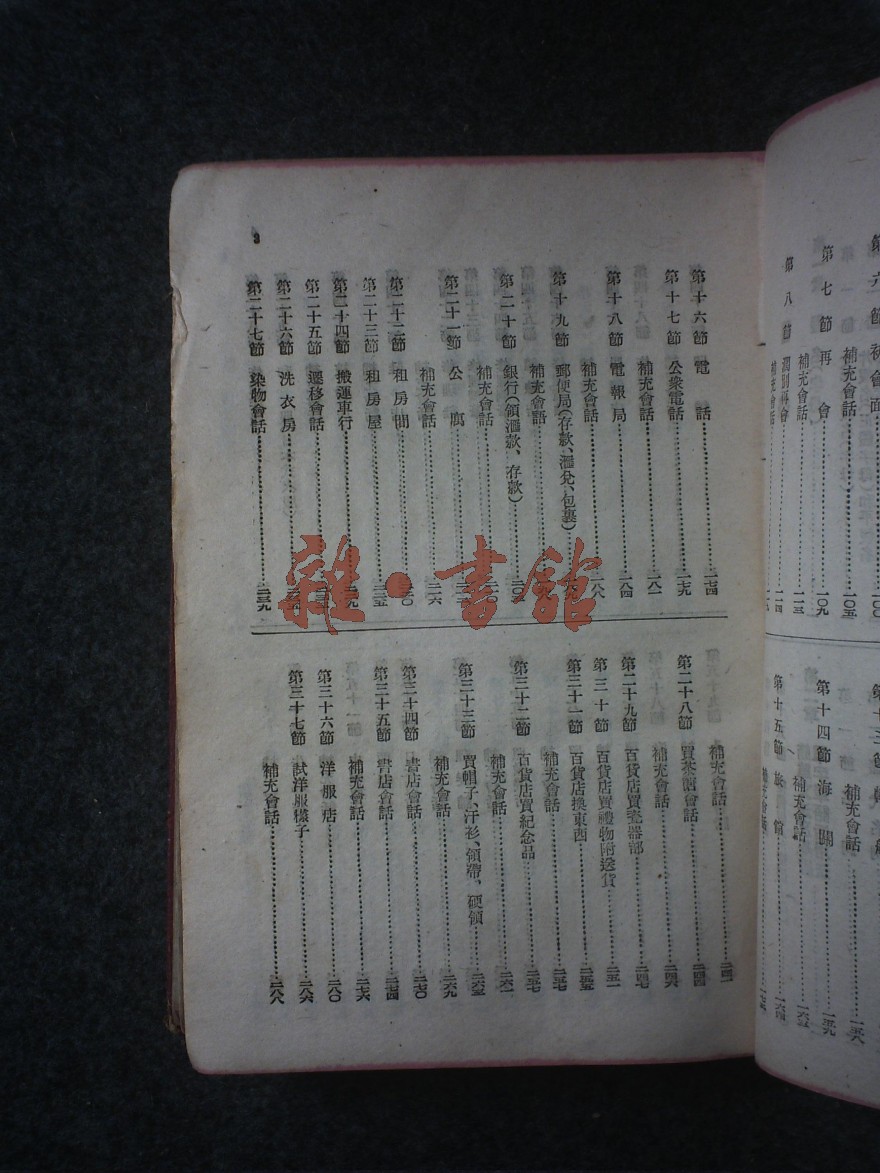 3
第十六節 電 話……一七四
第十七節 公衆電話……一七九
補充會話……一八一
第十八節 電報局……一八四
補充會話……一八
第十九節 郵便局(存款、滙兌、包裹)
補充會話
第二十節 銀行(領滙款、存款)
補充會話
第二十一節 公 寓
補充會話……二一六
第二十二節 租房間
第二十三節 租房屋……二二五
第二十四節 搬運車行
第二十五節 遷移會話
第二十六節 洗衣房
第二十七節 染物會話……二三九
補充會話……二四一
第二十八節 買茶葉會話……二四四
補充會話……二四六
第二十九節 百貨店買瓷器部……二四七
第三十節 百貨店買禮物附送貨……二五一
第三十一節 百貨店換東西……二五五
補充會話……二五七
第三十二節 百貨店買紀念品……二五七
補充會話……二六一
第三十三節 買帽子、汗衫、領帶、硬領……二六五
補充會話……二六九
第三十四節 書店會話……二七〇
第三十五節 書店會話……二七四
補充會話……二七六
第三十六節 洋服店……二八〇
第三十七節 試洋服樣子……二八六
補充會話……二八八
第六節 初會面
補充會話……一〇五
第七節 再 會……一〇九
補充會話……一一三
第八節……一一四
補充會話
補充會話……一五八
第十四節 海 關……一五九
補充會話……一六五
第十五節 旅 館……一六四
補充會話
雜·書館